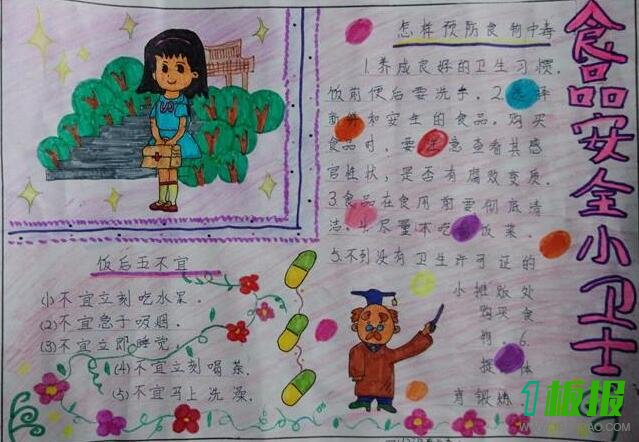 食品安全小卫士
怎样预防食物中毒
1.养成良好的卫生习惯.
饭前便后要洗手.2.选择
新鲜和安全的食品.购买
食品时,要注意查看其感
官性状,是否有腐败变质.
3.食品在食用前要彻底清
洁.4.尽量不吃 饭菜.
5.不到没有卫生许可证的
小摊贩处
购买食
物.6.
提 体
育锻炼
饭后五不宜
(1)不宜立刻吃水果.
(2)不宜急于吸烟.
(3)不宜立即睡觉.
(4)不宜立刻喝茶.
(5)不宜马上洗澡.
1板报